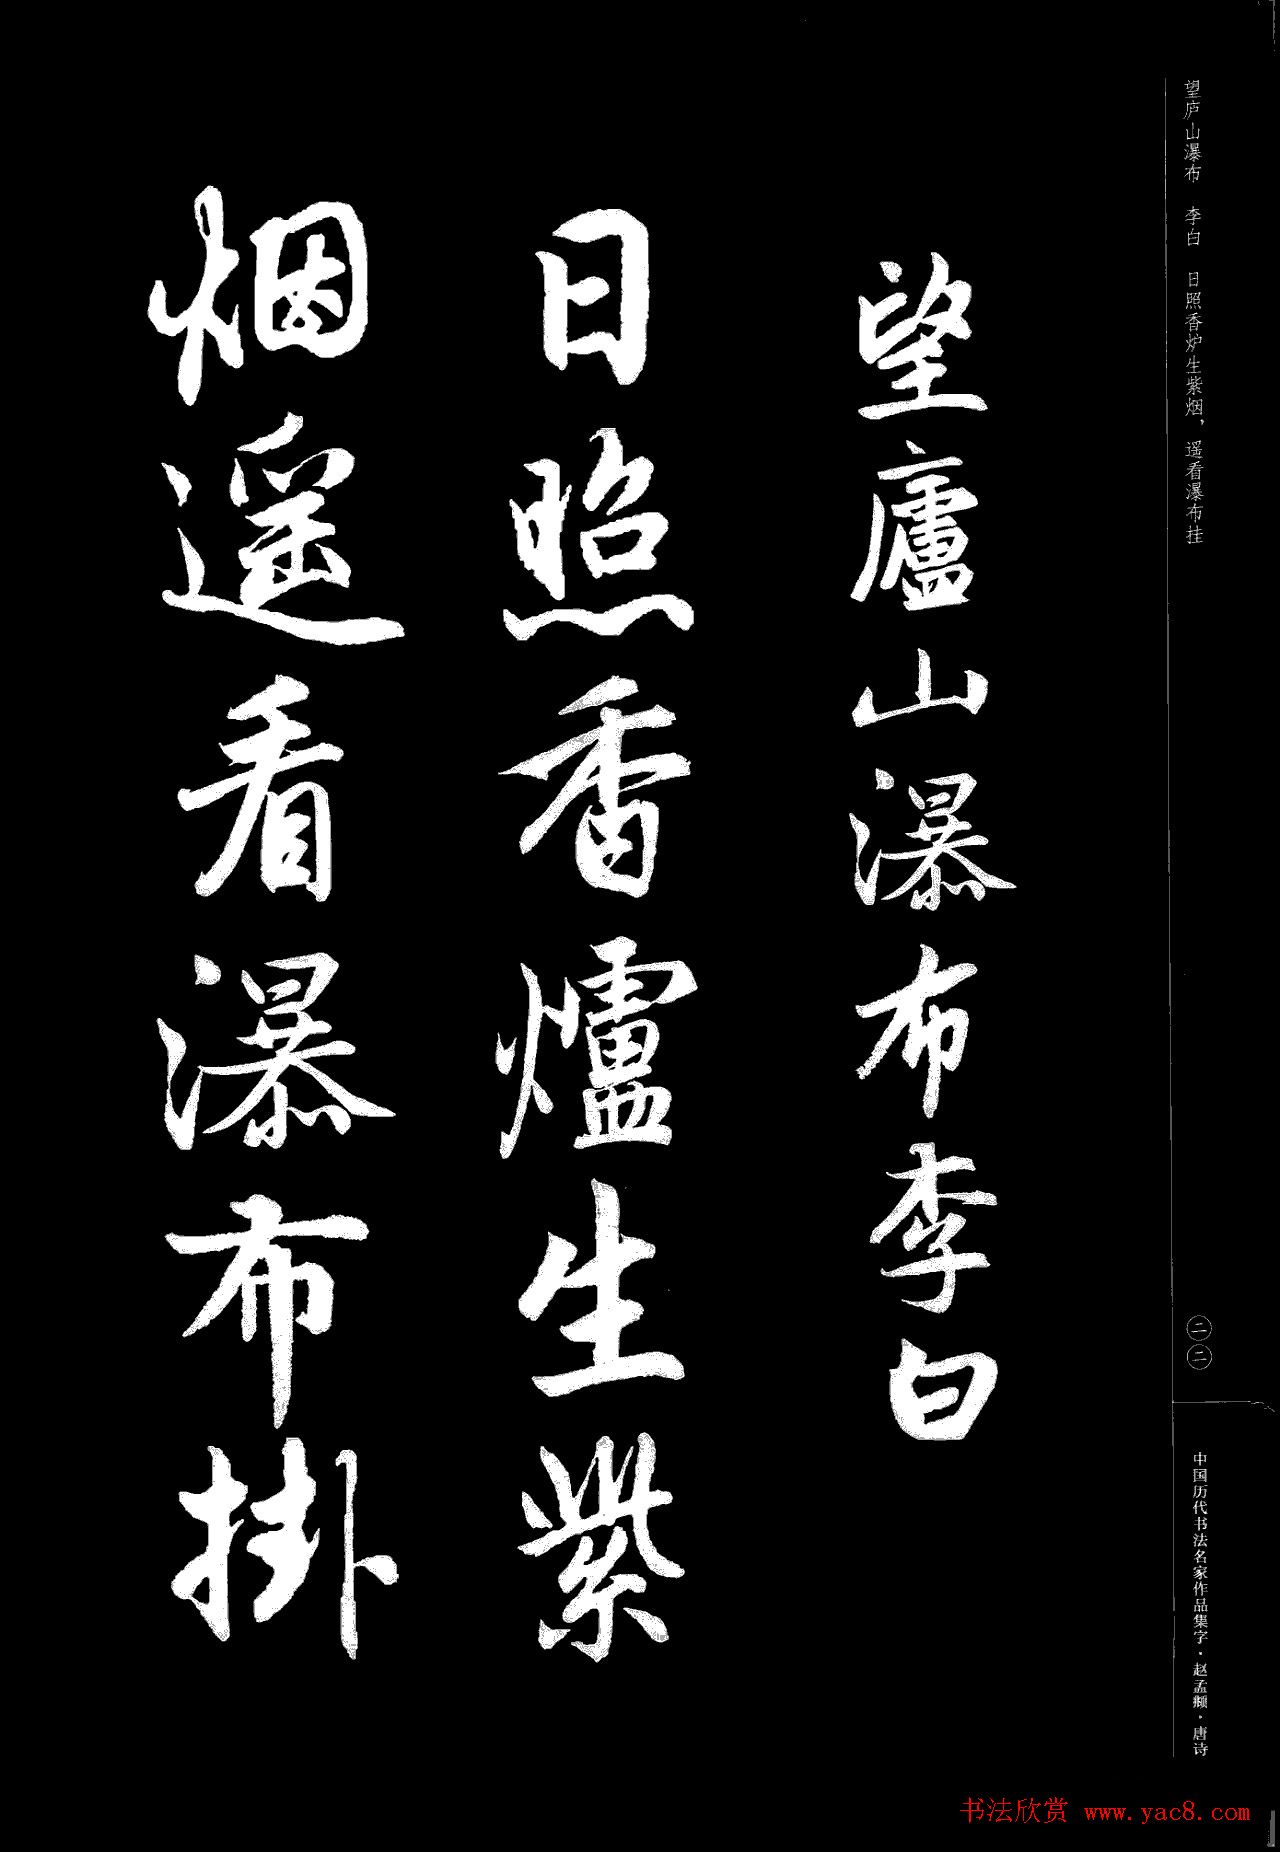 望庐山瀑布 李白 日照香炉生紫烟，遥看瀑布挂
望廬山瀑布李白
日照香爐生紫
烟遥看瀑布掛
二二
中国历代书法名家作品集字·赵孟頫·唐诗
书法欣赏 www.yac8.com